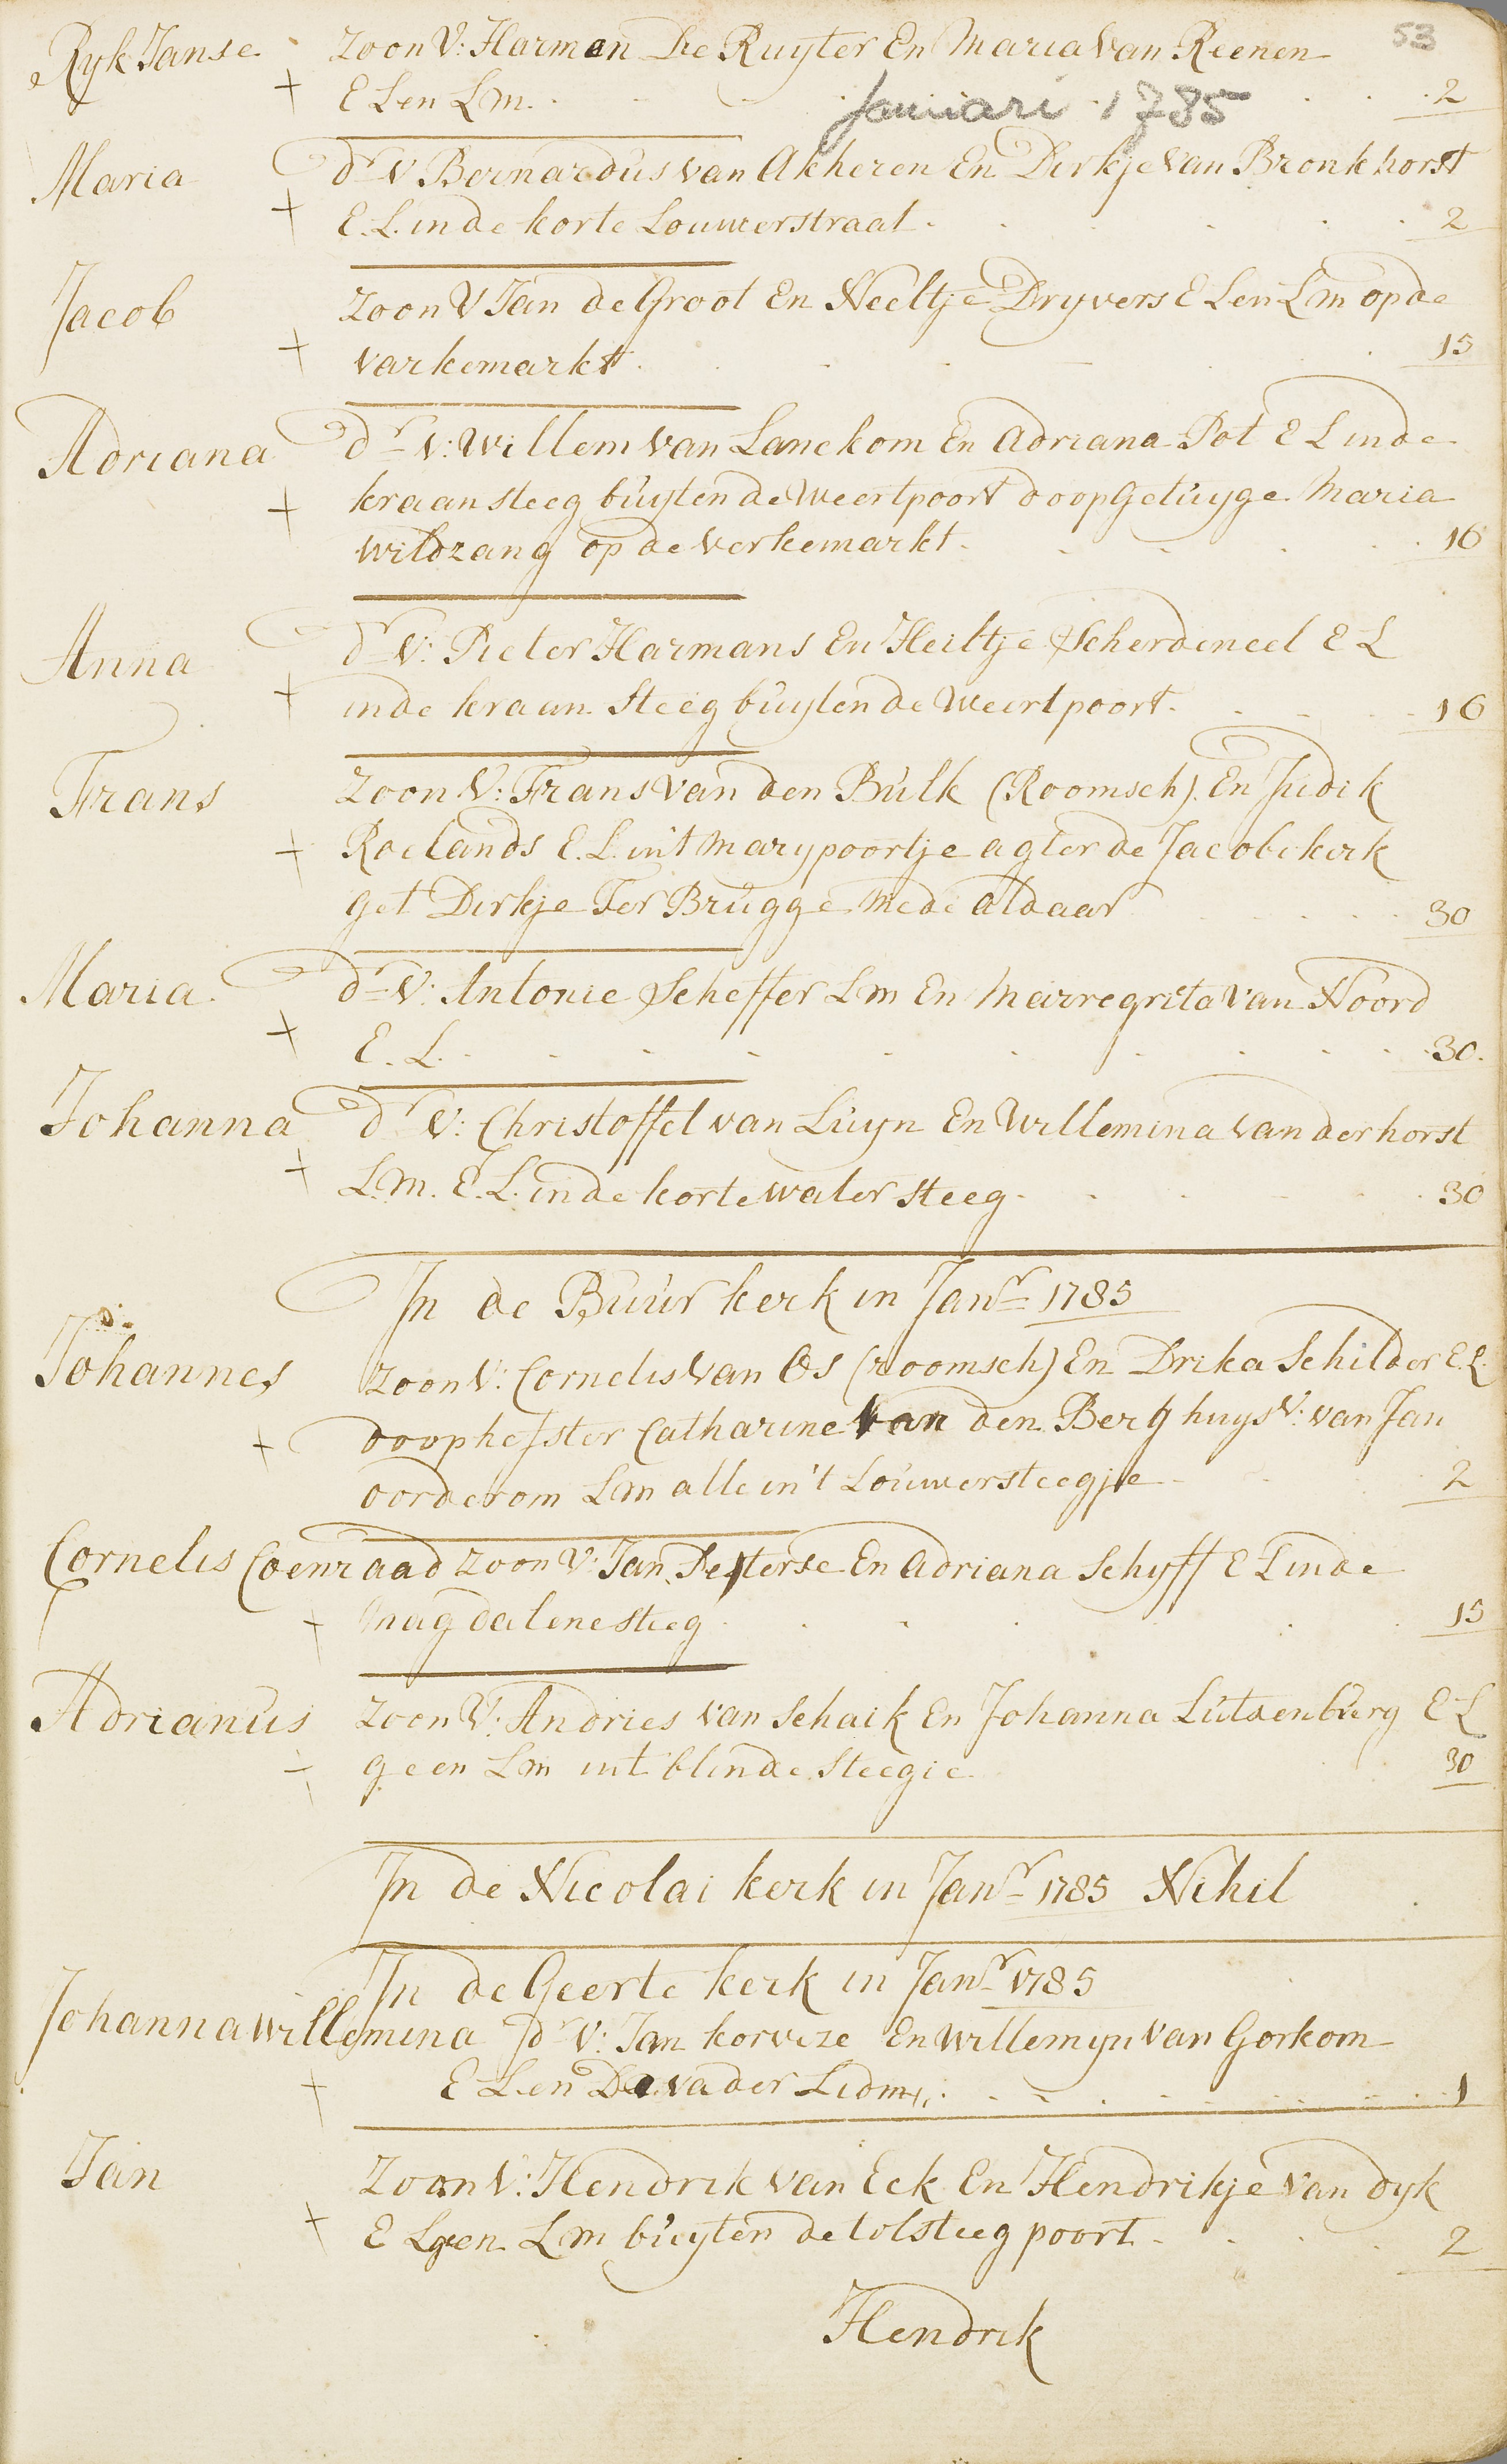 53
Ryk Janse zoon V: Harmen De Ruyter En Maria van Reenen
+ E L en Lm. 2
Januari 1785
Maria dr v Bernardus van Akheren En Dirkje van Bronkhorst
+ E. L. in de korte Louwerstraat. 2
Jacob zoon V Jan de Groot En Neeltje Dryvers E L en Lm op de
+ varkemarkt. 15
Adriana dr V: Willem van Lanekom En Adriana Pot E L in de
+ kraansteeg buyten de Weertpoort doopGetuyge Maria
wildzang op de verkemarkt. 16
Anna dr V: Pieter Harmans En Heiltje Scherdeneel E L
+ in de kraan Steeg buyten de Weertpoort. 16
Frans zoon V: Frans van den Bulk (Roomsch). En Judik
+ Roelands E. L. in't marypoortje agter de Jacobi kerk
get Dirkje Ter Brugge mede aldaar 30
Maria. dr V: Antonie Scheffer Lm En Marregrita van Noord
+ E. L. 30.
Johanna dr V: Christoffel van Luyn En Willemina van der horst
+ L.m. E. L. in de korte water steeg. 30
In de Buur kerk in Janr 1785
Johannes zoon V: Cornelis van Os (roomsch) En Drika Schilder E. L.
+ doophefster Catharine van den Berg huys V: van Jan
oorderom Lm alle in't Louwersteegje 2
Cornelis Coenraad zoon V: Jan Peterse En Adriana Schyff E L in de
+ magdalenesteeg 15
Adrianus zoon V: Andries van Schaik En Johanna Lutsenburg E L
+ geen Lm int blinde Steegie 30
In de Nicolai kerk in Janr 1785 Nihil
In de Geerte kerk in Janr 1785
Johanna willemina dr V: Jan korveze En willemyn van Gorkom
+ E L en De vader Lidm. 1
Jan Zoon V: Hendrik van Eck En Hendrikje van dyk
+ E L geen Lm buyten de tolsteeg poort. 2
Hendrik